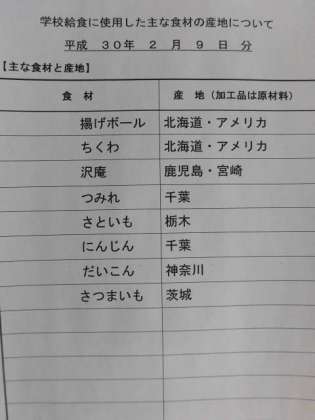 学校給食に使用した主な食材の産地について
平成 30年 2 月 9 日 分
【主な食材と産地】
食 材 産 地（加工品は原材料）
揚げボール 北海道・アメリカ
ちくわ 北海道・アメリカ
沢庵 鹿児島・宮崎
つみれ 千葉
さといも 栃木
にんじん 千葉
だいこん 神奈川
さつまいも 茨城